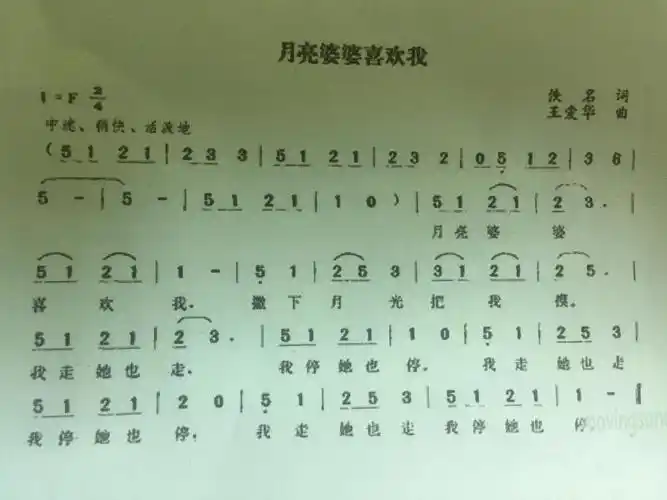 月亮婆婆喜欢我
1 = F 2/4
佚 名 词
中速、稍快、活泼地
王爱华 曲
( 5 1 2 1 | 2 3 3 | 5 1 2 1 | 2 3 2 | 0 5 1 2 | 3 6 |
5 - | 5 - | 5 1 2 1 | 1 0 ) | 5 1 2 1 | 2 3 . |
月 亮 婆 婆
5 1 2 1 | 1 - | 5 1 | 2 5 3 | 3 1 2 1 | 2 5 . |
喜 欢 我. 撒 下 月 光 把 我 摸.
5 1 2 1 | 2 3 . | 5 1 2 1 | 1 0 | 5 1 | 2 5 3 |
我 走 她 也 走. 我 停 她 也 停. 我 走 她 也 走
5 1 2 1 | 2 0 | 5 1 | 2 5 3 | 5 1 2 1 | 1 - ‖
我 停 她 也 停. 我 走 她 也 走 我 停 她 也 停